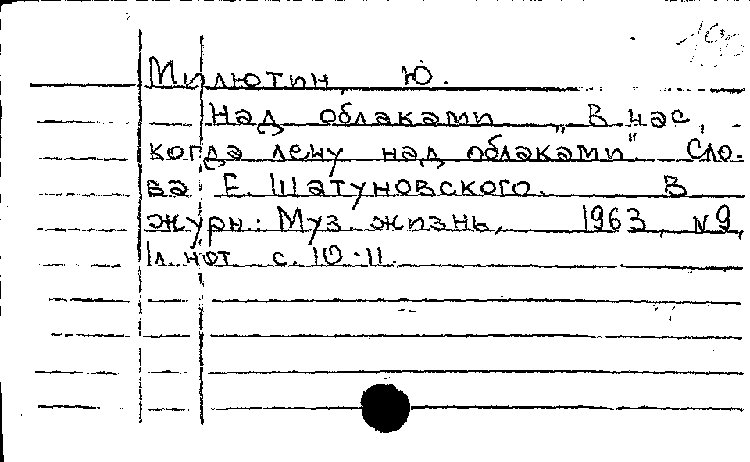 Милютин, Ю.
Над облаками „В час,
когда лечу над облаками". Сло-
ва Е. Шатуновского. В
журн.: Муз. жизнь, 1963, №9,
1л. нот с. 10-11.